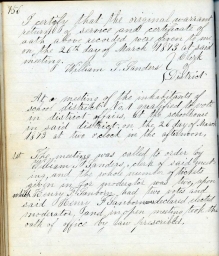 150
I certify that the original warrant
return of service and certificate of
oath above recorded were given to me
on the 26th day of March 1873 at said
meeting.
William T. Sanders } Clerk
of
District
At a meeting of the inhabitants of
school district No. 1 qualified to vote
in district affairs, at the schoolhouse
in said district on the 26 day of March
1873 at two o'clock in the afternoon.
1st The meeting was called to order by
William T. Sanders, clerk of said meet-
ing, and the whole number of ballots
given in for moderator was two, of
which Henry F. Sanborn had two votes and
said Henry F. Sanborn was declared elected
moderator, and in open meeting took the
oath of office by law prescribed.